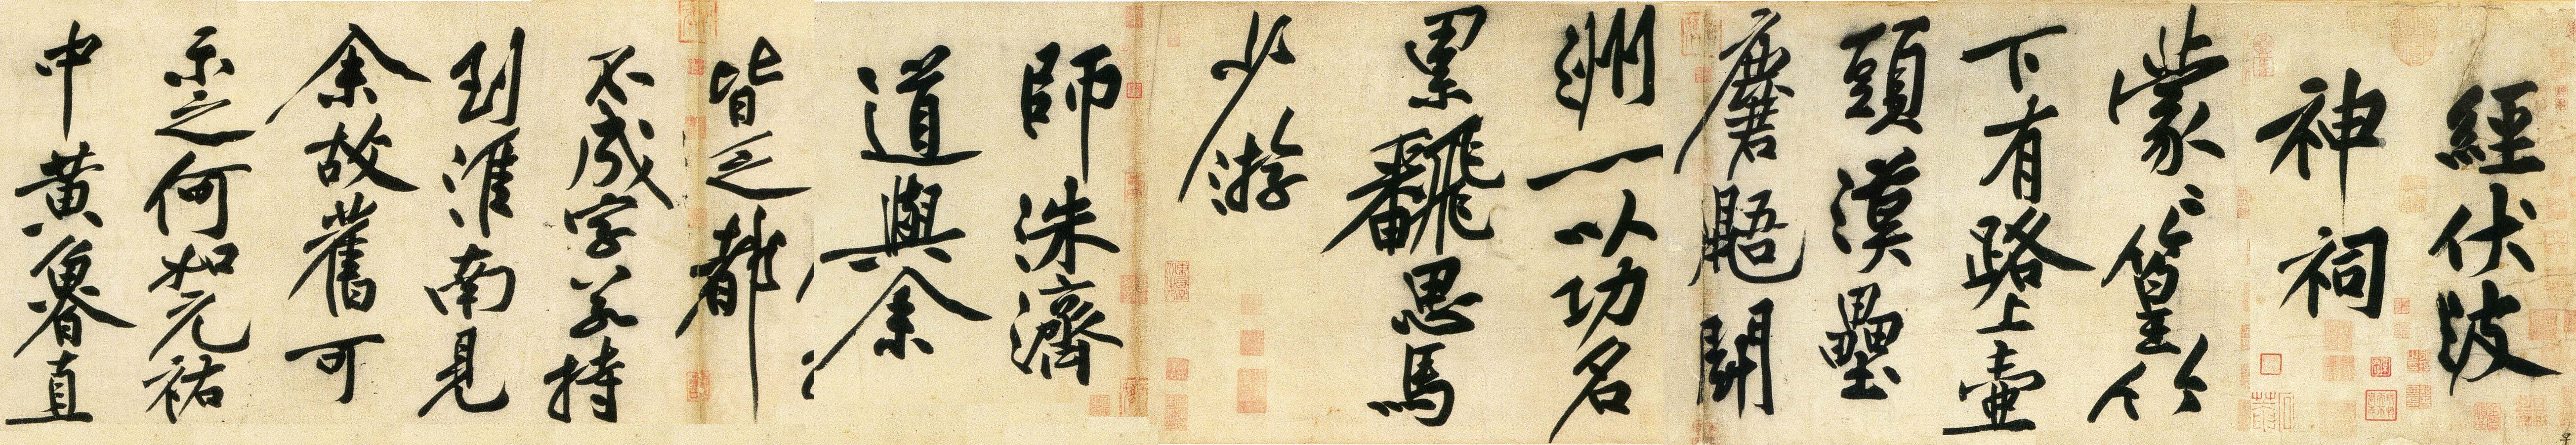 經伏波
神祠
蒙〻篁竹
下有路上壺
頭漢壘
麏鼯鬭
洲一以功名
累飜思馬
少游
師洙濟
道與余
皆乏都
不成字若持
到淮南見
余故舊可
示之何如元祐
中黃魯直